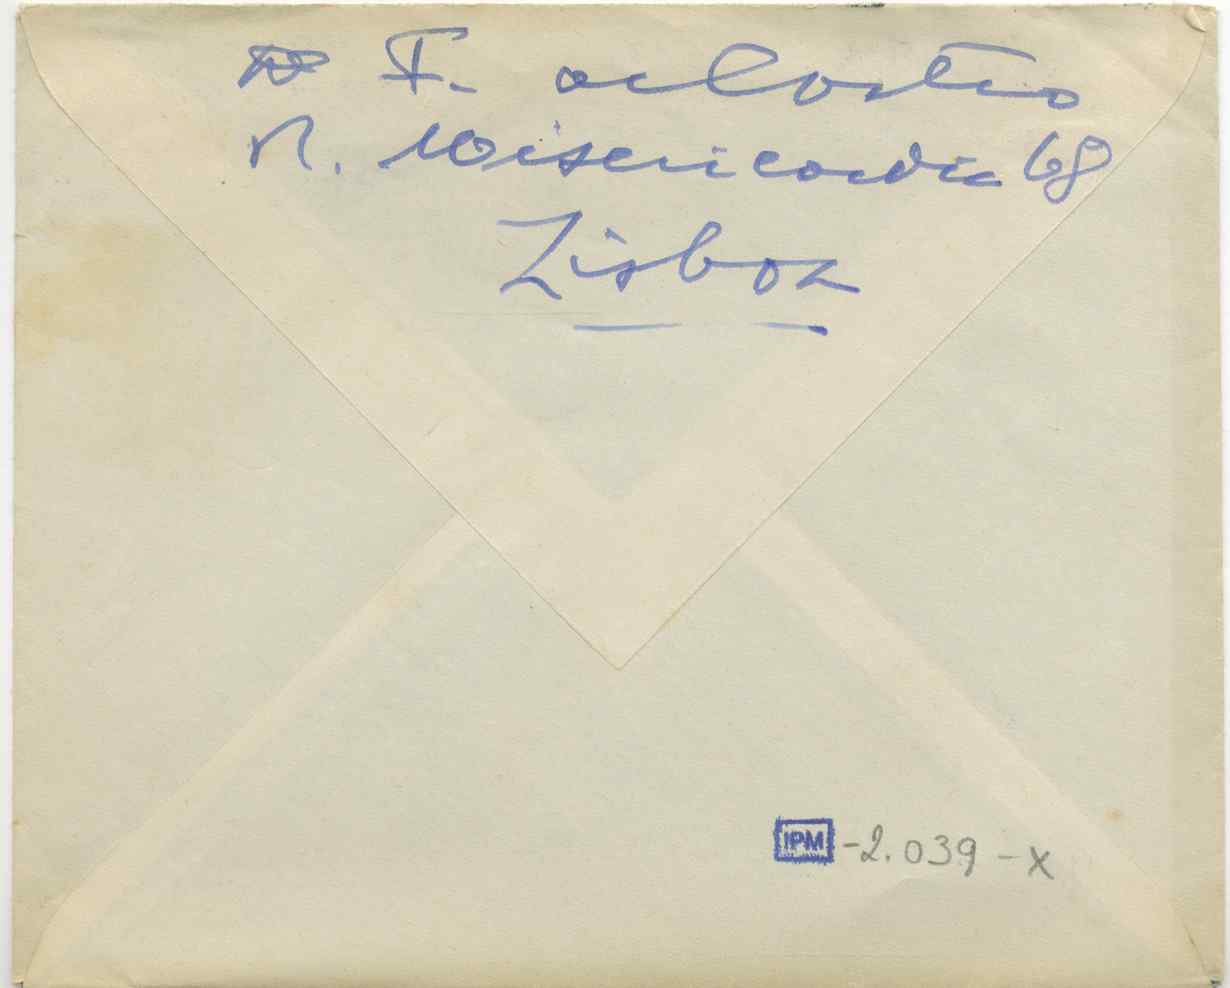 F. de Castro
R. Misericordia 68
Lisboa
IPM -2.039 - X